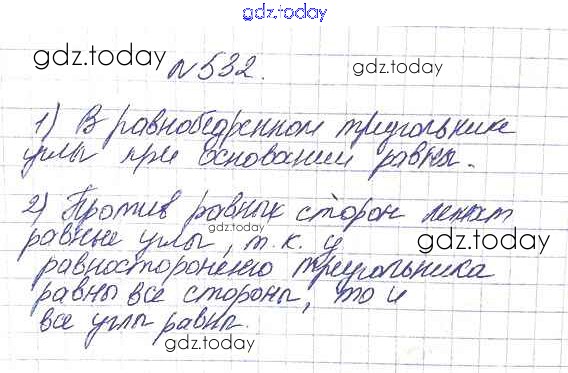 gdz.today
gdz.today
№532.
gdz.today
1) В равнобедренном треугольнике
углы при основании равны.
2) Против равных сторон лежат
равные углы, т.к. у
gdz.today
gdz.today
равностороненго треугольника
равны все стороны, то и
все углы равны.
gdz.today